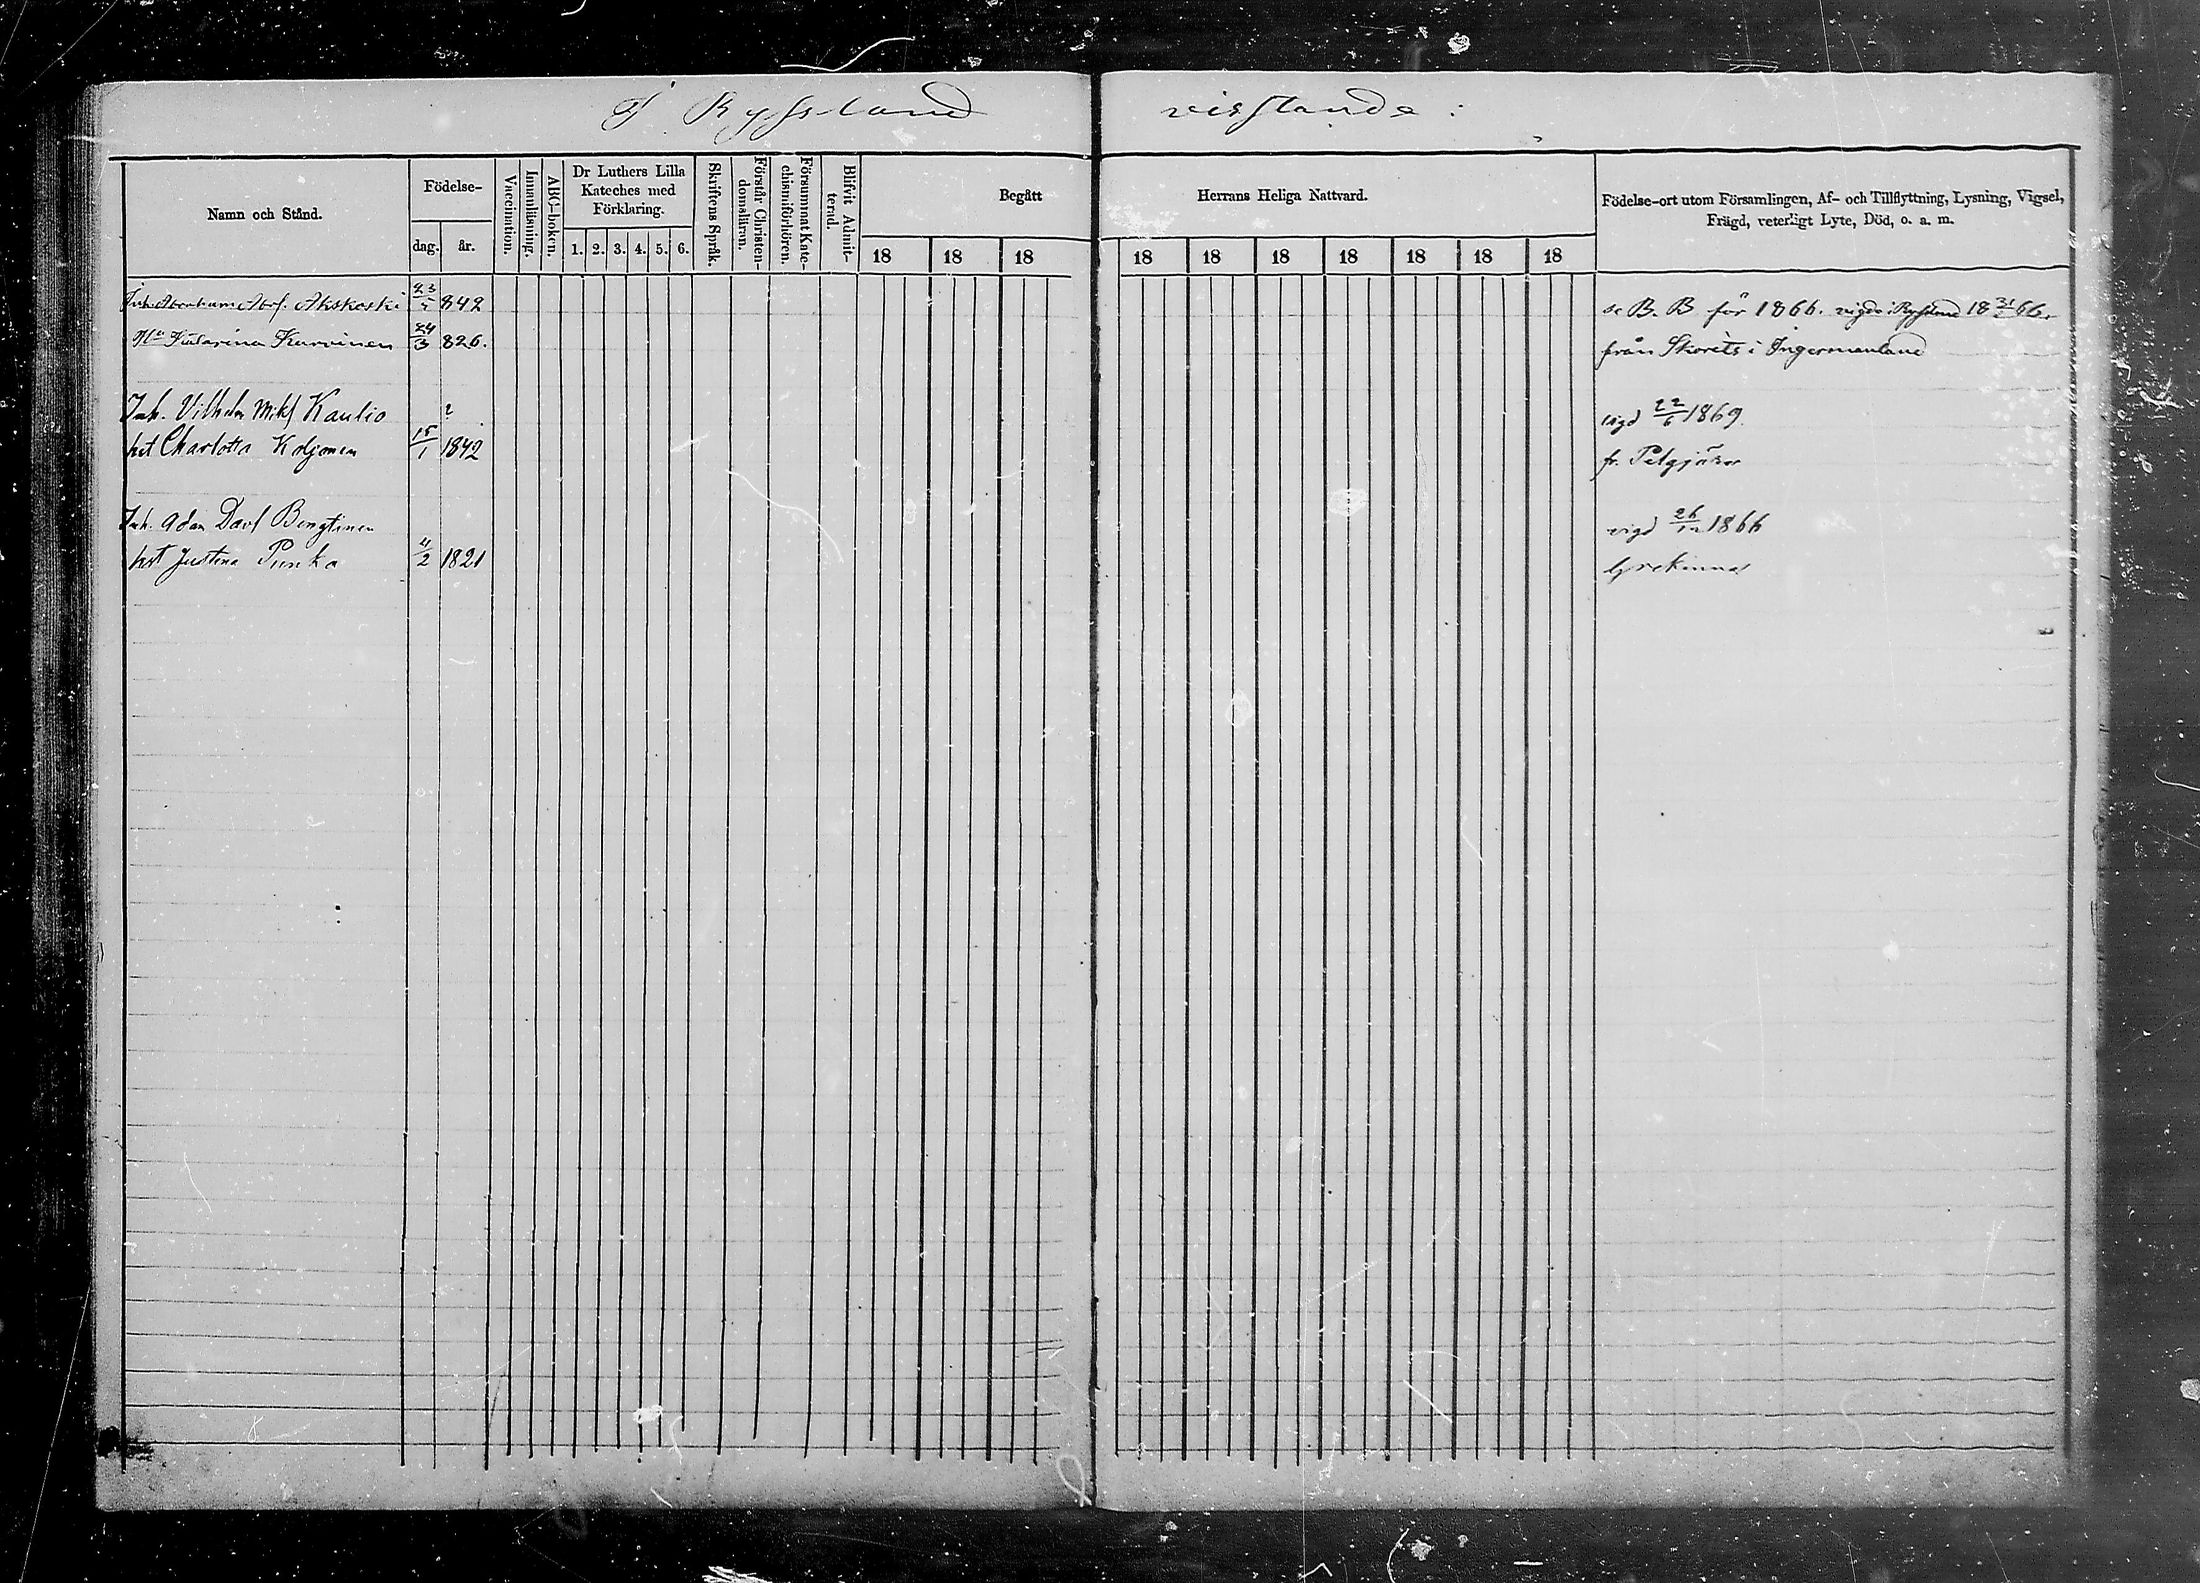 I Ryssland visstande:
Namn och Stånd.
Födelse-
dag.
år.
Vaccination.
Innanläsning.
ABC-boken.
Dr Luthers Lilla
Kateches med
Förklaring.
1. 2. 3. 4. 5. 6.
Skriftens Språk.
Förstår Christen-
domsläran.
Försummat Kate-
chismiförhören.
Blifvit Admit-
terad.
Begått
Herrans Heliga Nattvard.
18 18 18 18 18 18 18 18 18 18
Födelse-ort utom Församlingen, Af- och Tillflyttning, Lysning, Vigsel,
Frägd, veterligt Lyte, Död, o. a. m.
Inh. Abraham Abrs. Akskoski 23/5 842 se B. B för 1866. vigde i Ryssland 66.
Hu Katarina Karvinen 24/3 826. från Skorits i Ingermanland
Inh. Vilhelm Miks Kaulio ? vigd 22/6 1869.
hst Charlotta Koljonen 15/1 1842 fr. Pelgjärvi
Inh. Adam Davs Bengtinen vigd 26/12 1866
hst Justina Punka 4/2 1821 Grekinna